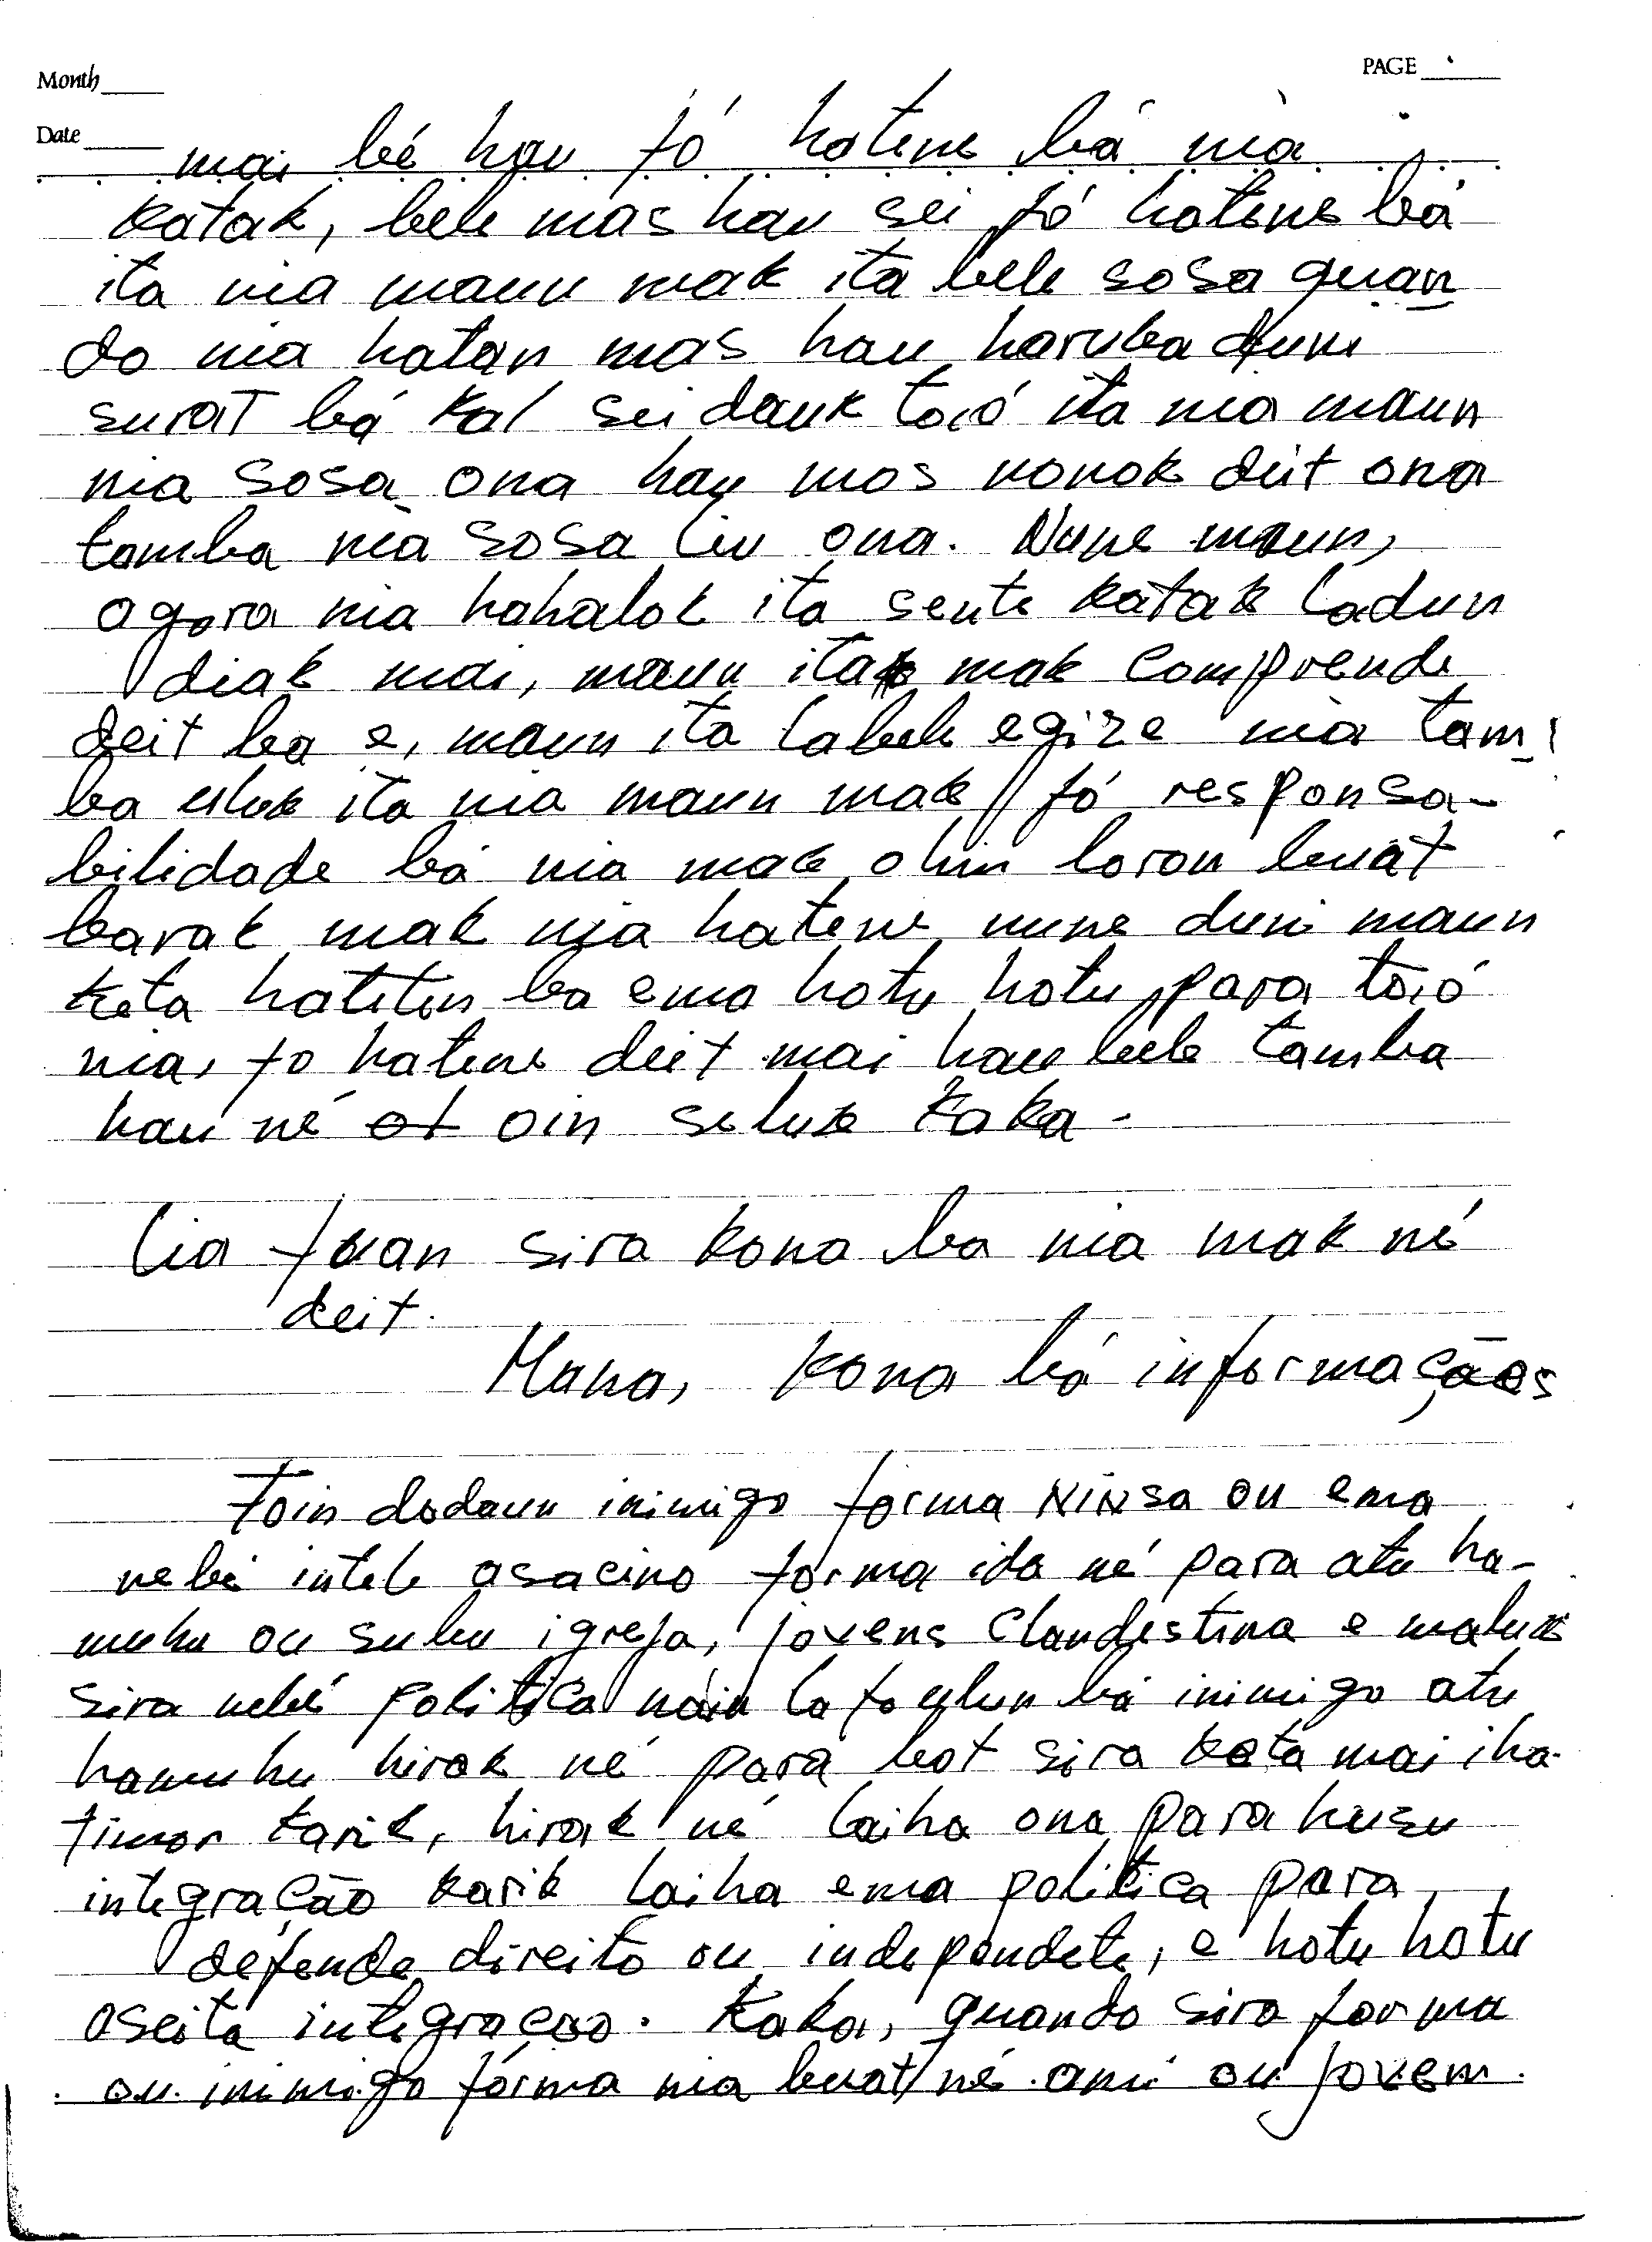 Month
PAGE
Date
mai bé hau fó hatene bá nia
katak, bele mas hau sei fó hatene bá
ita nia maun mak ita bele sosa quan
do nia hatan mas hau haruka duni
surat bá kal seidauk toió ita nia maun
nia sosa ona hau mos nonok deit ona
tamba nia sosa liu ona. Nune maun,
agora nia hahalok ita sente katak ladun
diak mai, maun ita mak comprende
deit ba e, maun ita labele egize nia tam
ba uluk ita nia maun mak fó responsa-
bilidade bá nia mak ohin loron buat
barak mak nia hatene nune duni maun
keta hateten ba ema hotu hotu, para toió
nia, fo hatene deit mai hau bele tamba
hau né ot oin seluk Kaka-
Lia fuan sira kona ba nia mak né
deit.
Mana, kona bá informaçães
Foin dadaun inimigo forma NINSA ou ema
nebé intele asacino forma ida né para atu ha-
muhu ou subu igreja, jovens Clandestina e maluk
sira nebé politica náin la fo ulun bá inimigo atu
hamuhu hirak né para bot sira keta mai iha
timor karik, hirak né laiha ona para husu
integração karik laiha ema politica para
defende direito ou independete, e hotu hotu
aseita integraçao. Kaka, quando sira forma
ou inimigo fórma nia buat né ami ou jovem.